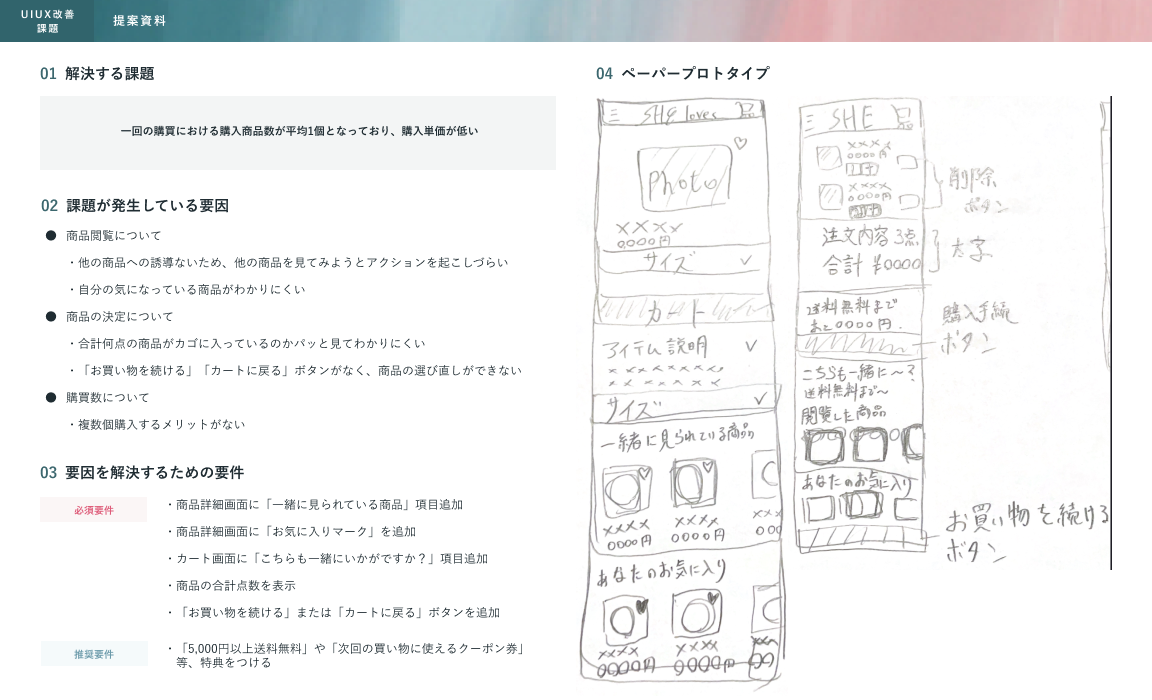 UIUX改善
課題
提案資料
01 解決する課題
一回の購買における購入商品数が平均1個となっており、購入単価が低い
02 課題が発生している要因
● 商品閲覧について
・他の商品への誘導ないため、他の商品を見てみようとアクションを起こしづらい
・自分の気になっている商品がわかりにくい
● 商品の決定について
・合計何点の商品がカゴに入っているのかパッと見てわかりにくい
・「お買い物を続ける」「カートに戻る」ボタンがなく、商品の選び直しができない
● 購買数について
・複数個購入するメリットがない
03 要因を解決するための要件
必須要件
・商品詳細画面に「一緒に見られている商品」項目追加
・商品詳細画面に「お気に入りマーク」を追加
・カート画面に「こちらも一緒にいかがですか？」項目追加
・商品の合計点数を表示
・「お買い物を続ける」または「カートに戻る」ボタンを追加
推奨要件
・「5,000円以上送料無料」や「次回の買い物に使えるクーポン券」
等、特典をつける
04 ペーパープロトタイプ
SHE loves
Photo
××××
0000円
サイズ
カート
アイテム説明
サイズ
一緒に見られている商品
×××× ×××× ×××
0000円 0000円 00
あなたのお気に入り
×××× ××××
0000円 0000円
SHE
××××
0000円
××××
0000円
削除
ボタン
注文内容 3点
合計 ¥0000
太字
送料無料まで
あと0000円.
購入手続
ボタン
こちらも一緒に〜?
送料無料まで〜
閲覧した商品
あなたのお気に入り
お買い物を続ける
ボタン